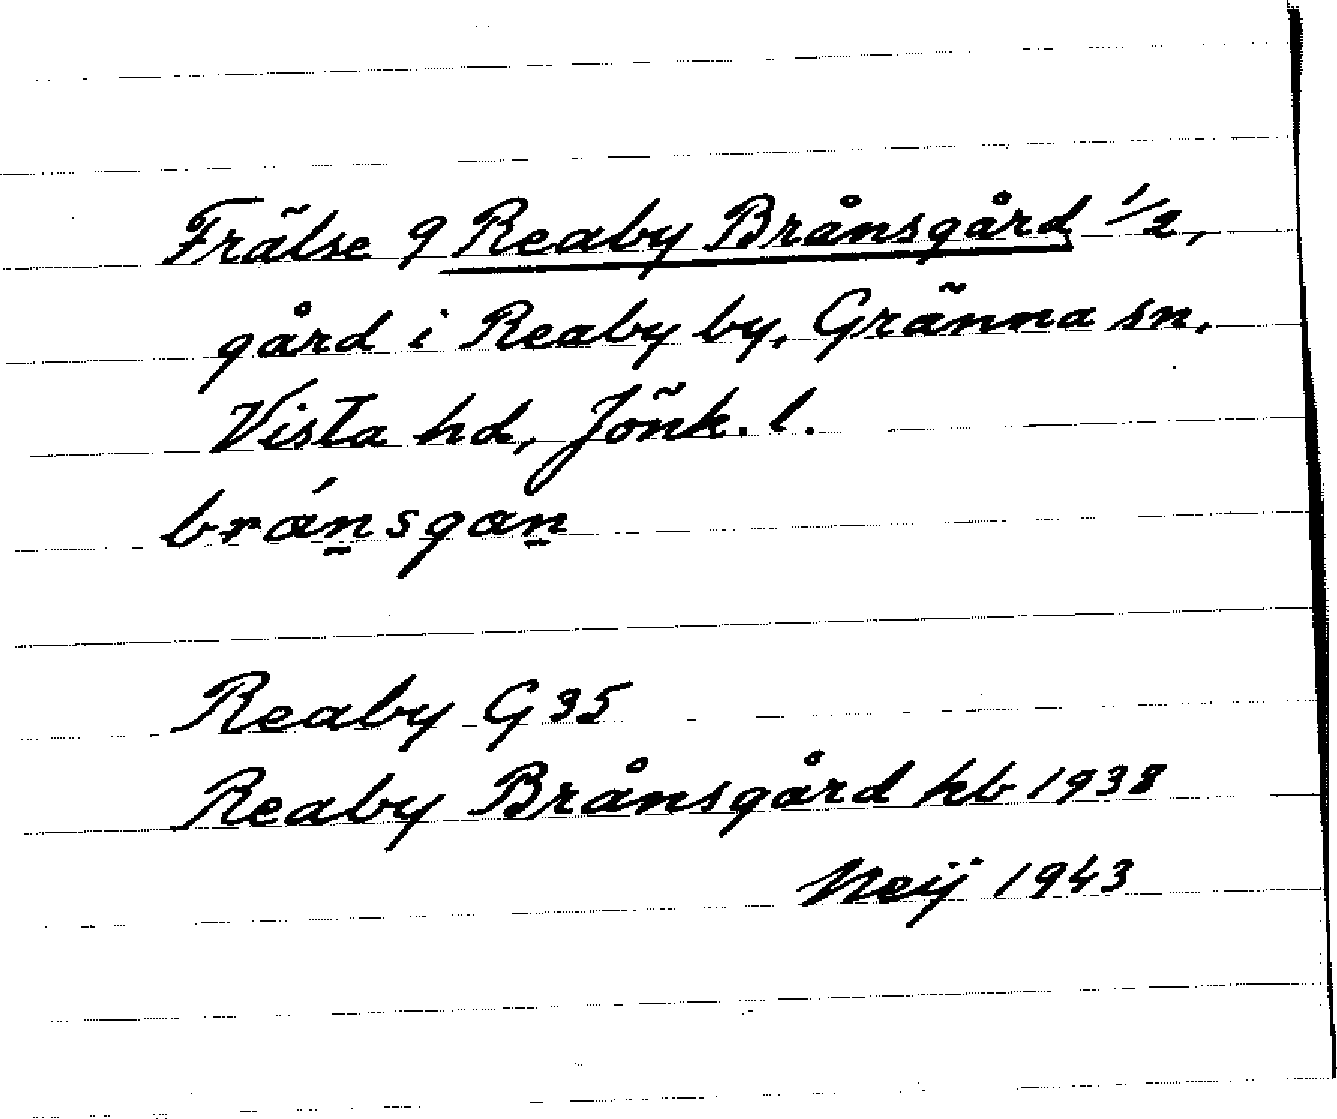 Frälse 9 Reaby Brånsgård 1/2,
gård i Reaby by, Gränna sn,
Vista hd, Jönk. l.
brá̱nsgan̠
Reaby G 35
Reaby Brånsgård hb 1938
Neij 1943